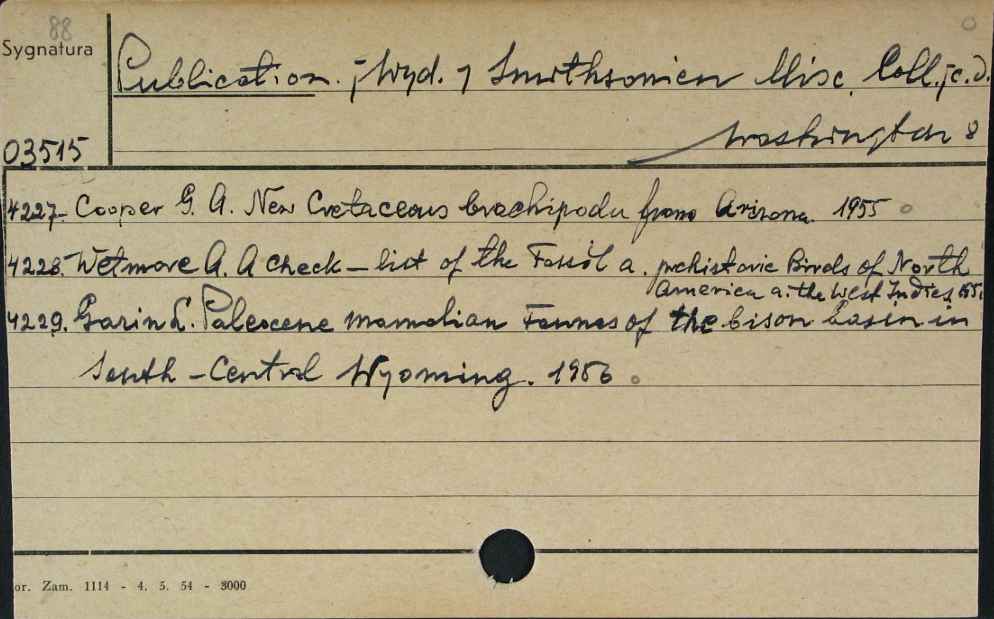 88
Sygnatura
Publication. ; Wyd. 7 Smithsonien Misc. Coll. ; c.d.
Washington 8
03515
4227. Cooper G. A. New Cretaceous brachipodu from Arizona. 1955
4228. Wetmore A. A Check-list of the Fossil a. prehistoric Birds of North
America a. the West Indies
4229. Garin L. Paleocene mamalian Faunas of the bison basin in
South-Central Wyoming. 1956
or. Zam. 1114 - 4. 5. 54 - 3000